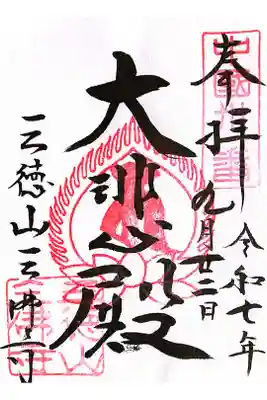 奉拝
令和七年
九月廿二日
大悲殿
三徳山三佛寺